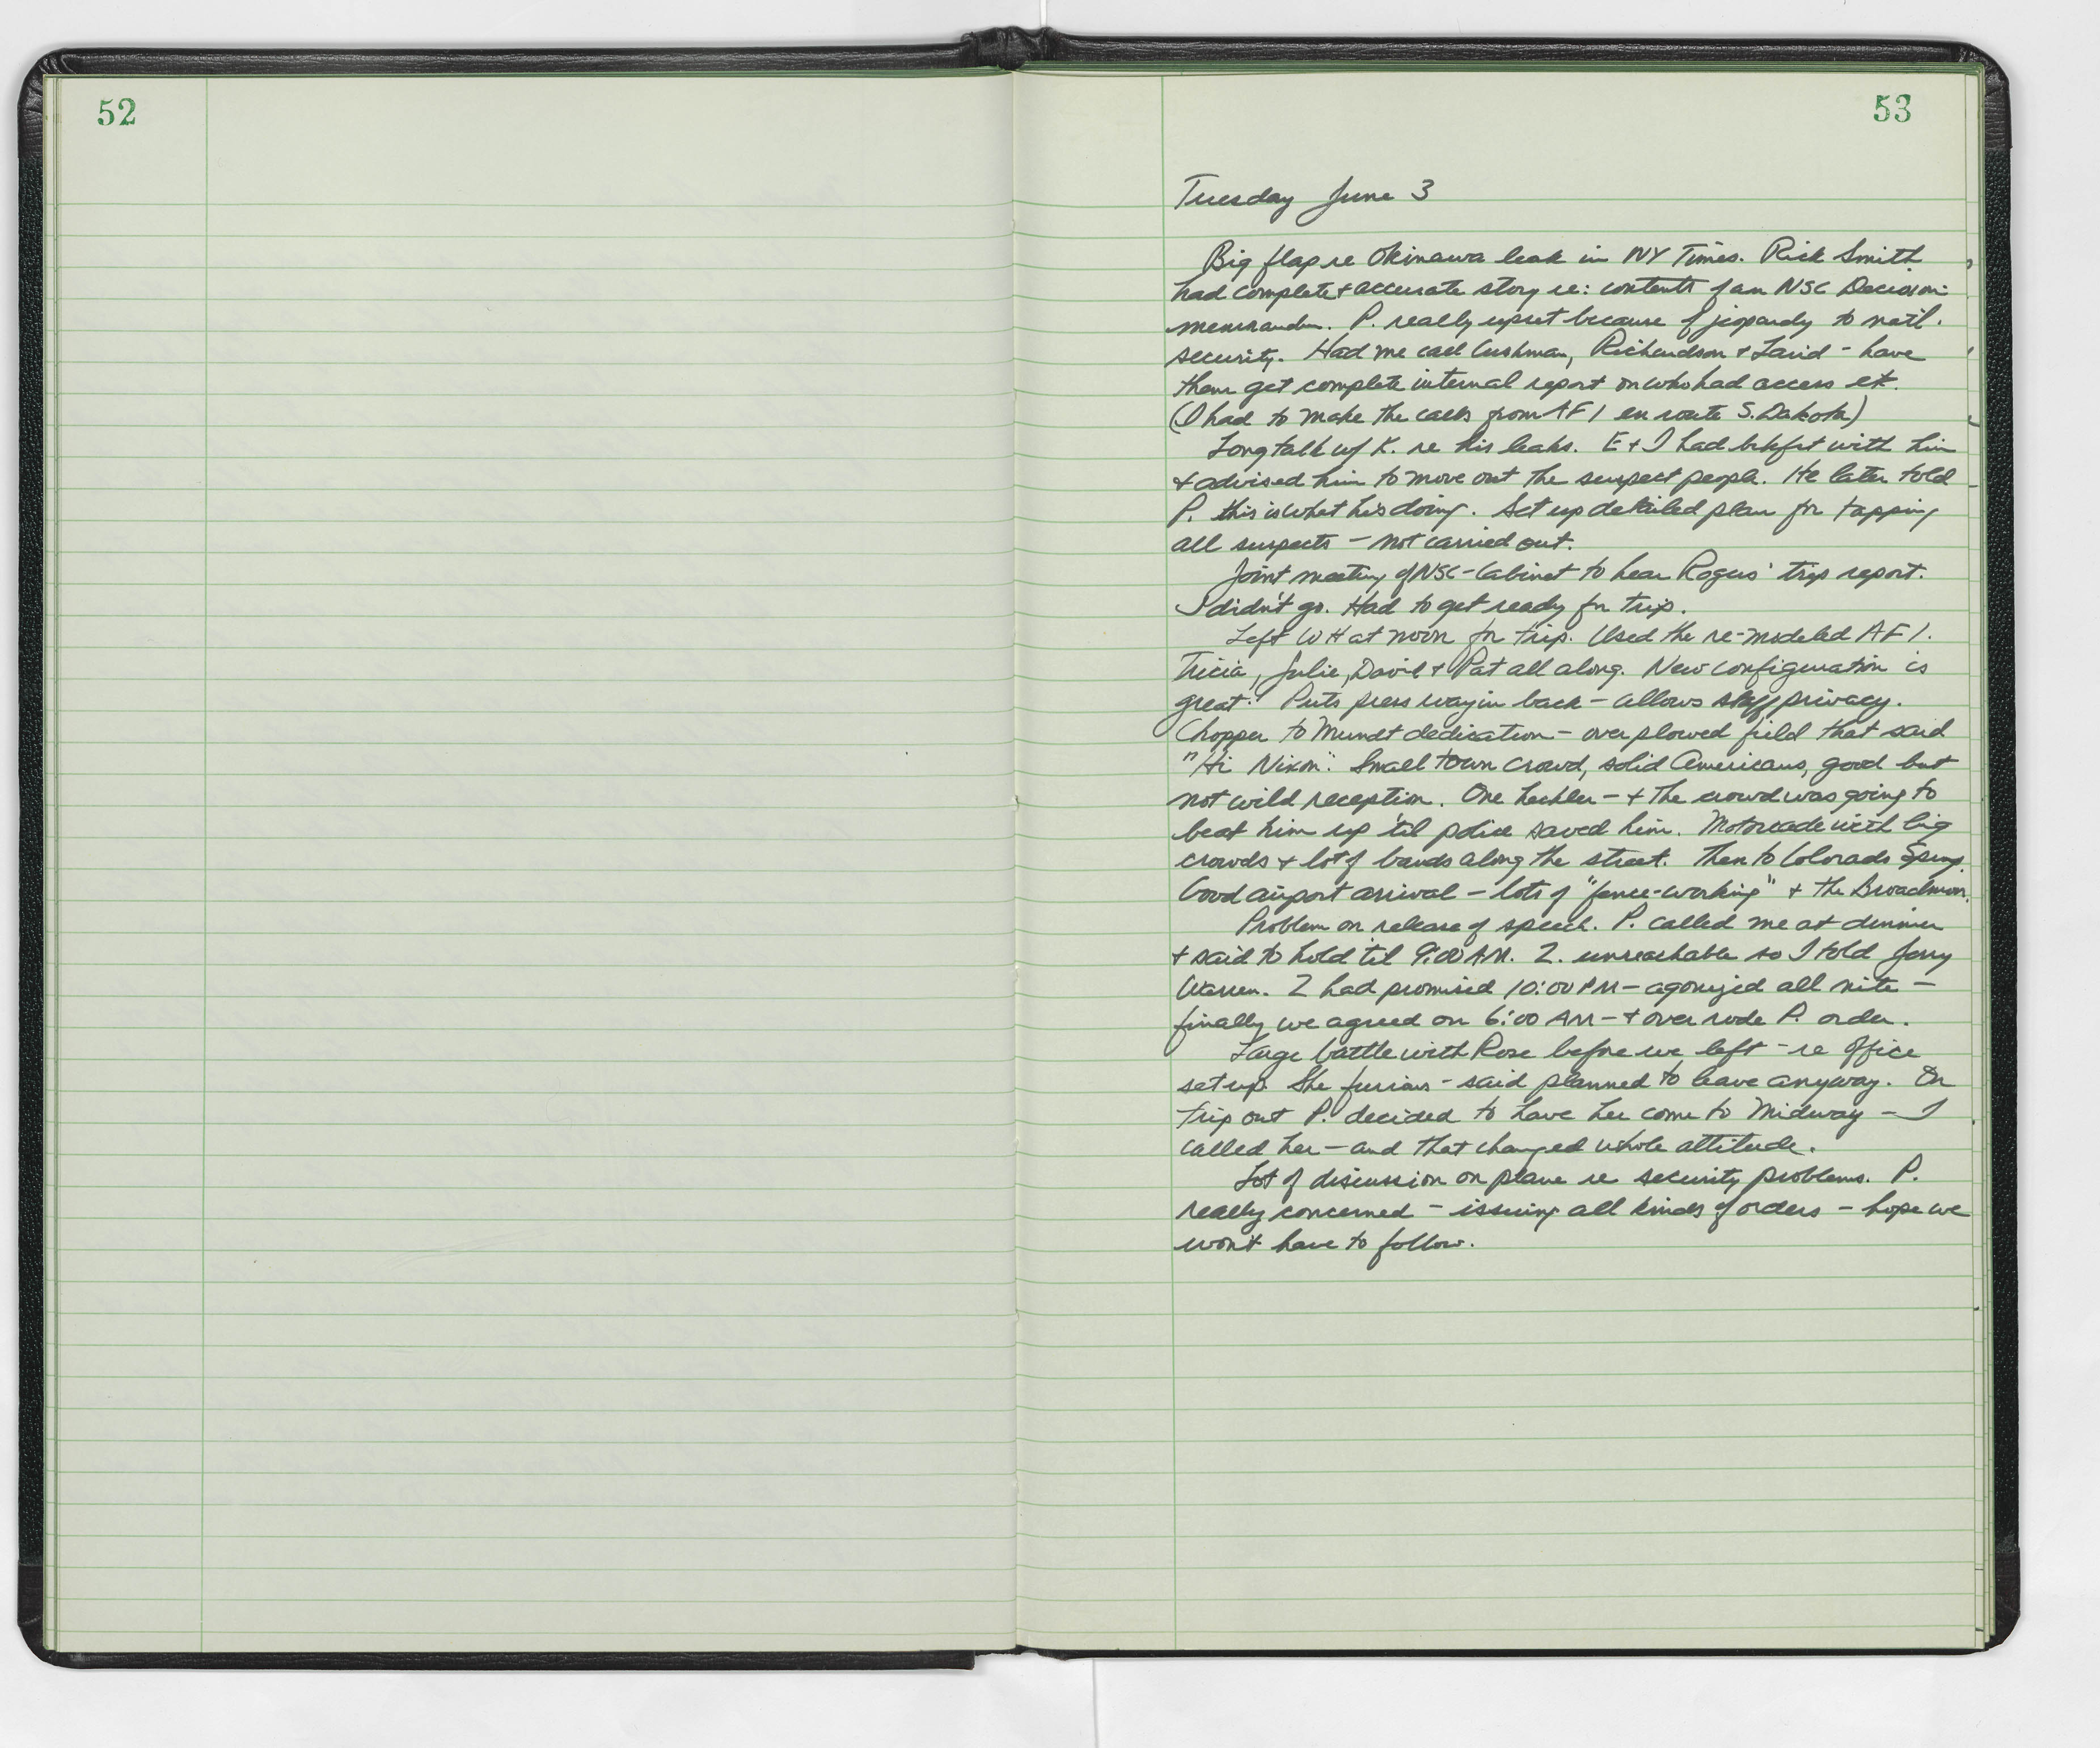 52
53
Tuesday June 3
Big flap re Okinawa leak in NY Times. Rick Smith
had complete & accurate story re: contents of an NSC Decision
memorandum. P. really upset because of jeopardy to nat'l.
security. Had me call Cushman, Richardson & Laird - have
them get complete internal report on who had access etc.
(I had to make the calls from AF 1 en route S. Dakota)
Long talk w/ K. re his leaks. E & I had bkfst with him
& advised him to move out the suspect people. He later told
P. this is what he's doing. Set up detailed plan for tapping
all suspects - not carried out.
Joint meeting of NSC-Cabinet to hear Rogers' trip report.
I didn't go. Had to get ready for trip.
Left WH at noon for trip. Used the re-modeled AF 1.
Tricia, Julie, David & Pat all along. New configuration is
great! Puts press way in back - allows staff privacy.
Chopper to Mundt dedication - over plowed field that said
"Hi Nixon". Small town crowd, solid Americans, good but
not wild reception. One heckler - & the crowd was going to
beat him up 'til police saved him. Motorcade with big
crowds & lot of bands along the street. Then to Colorado Springs.
Good airport arrival - lots of "fence-working" & the Broadmoor.
Problem on release of speech. P. called me at dinner
& said to hold til 9:00 AM. Z. unreachable so I told Jerry
Warren. Z had promised 10:00 PM - agonized all nite -
finally we agreed on 6:00 AM - & over rode P. order.
Large battle with Rose before we left - re office
set up. She furious - said planned to leave anyway. On
trip out P. decided to have her come to Midway - I
called her - and that changed whole attitude.
Lot of discussion on plane re security problems. P.
really concerned - issuing all kinds of orders - hope we
won't have to follow.